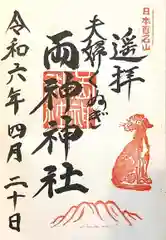 日本百名山
遥拝
夫婦
両神神社
令和六年四月二十日